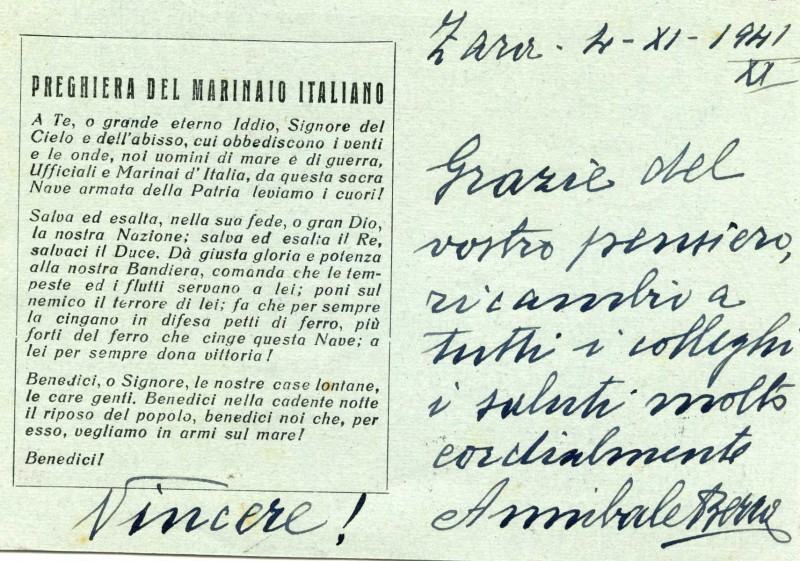 PREGHIERA DEL MARINAIO ITALIANO
A Te, o grande eterno Iddio, Signore del
Cielo e dell'abisso, cui obbediscono i venti
e le onde, noi uomini di mare e di guerra,
Ufficiali e Marinai d'Italia, da questa sacra
Nave armata della Patria leviamo i cuori!
Salva ed esalta, nella sua fede, o gran Dio,
la nostra Nazione; salva ed esalta il Re,
salvaci il Duce. Dà giusta gloria e potenza
alla nostra Bandiera, comanda che le tem-
peste ed i flutti servano a lei; poni sul
nemico il terrore di lei; fa che per sempre
la cingano in difesa petti di ferro, più
forti del ferro che cinge questa Nave; a
lei per sempre dona vittoria!
Benedici, o Signore, le nostre case lontane,
le care genti. Benedici nella cadente notte
il riposo del popolo, benedici noi che, per
esso, vegliamo in armi sul mare!
Benedici!
Vincere!
Zara - 4-XI-1941
XX
Grazie del
vostro pensiero,
ricambio a
tutti i colleghi
i saluti molto
cordialmente
Annibale